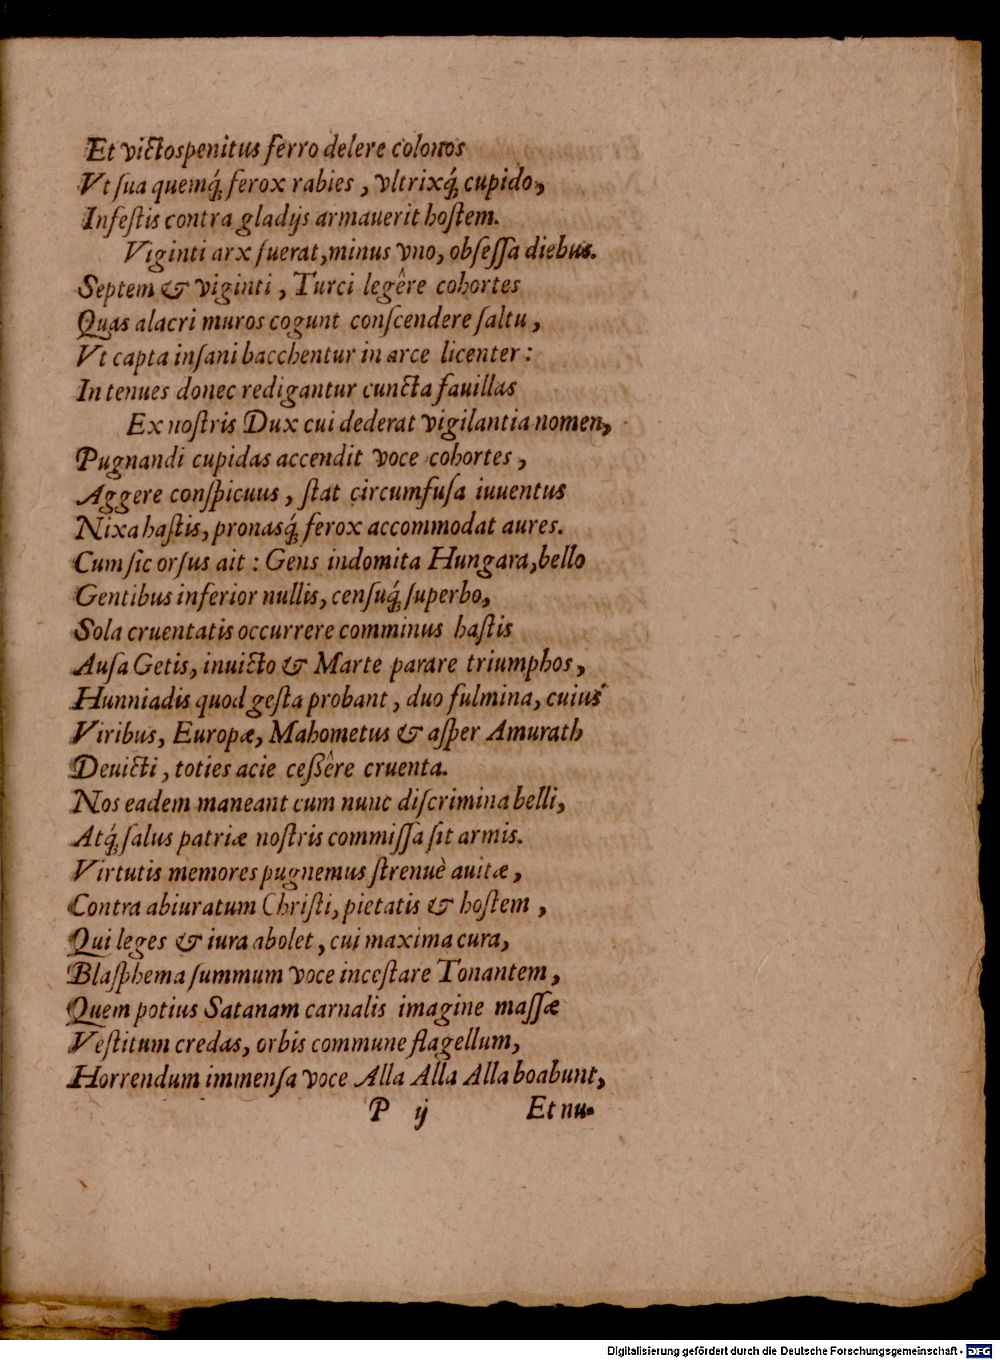 Et victospenitus ferro delere colonos
Vt ſua quemq́ꝫ ferox rabies, vltrixq́ꝫ cupido,
Infeſtis contra gladijs armauerit hoſtem.
Viginti arx fuerat, minus vno, obſeſſa diebus.
Septem & viginti, Turci legêre cohortes
Quas alacri muros cogunt conſcendere ſaltu,
Vt capta inſani bacchentur in arce licenter:
In tenues donec redigantur cuncta fauillas
Ex noſtris Dux cui dederat vigilantia nomen,
Pugnandi cupidas accendit voce cohortes,
Aggere conſpicuus, ſtat circumfuſa iuuentus
Nixa haſtis, pronasq́ꝫ ferox accommodat aures.
Cum ſic orſus ait: Gens indomita Hungara, bello
Gentibus inferior nullis, cenſuq́ꝫ ſuperbo,
Sola cruentatis occurrere comminus haſtis
Auſa Getis, inuicto & Marte parare triumphos,
Hunniadis quod geſta probant, duo fulmina, cuius
Viribus, Europæ, Mahometus & aſper Amurath
Deuicti, toties acie ceſsêre cruenta.
Nos eadem maneant cum nunc diſcrimina belli,
Atq́ꝫ ſalus patriæ noſtris commiſſa ſit armis.
Virtutis memores pugnemus ſtrenuè auitæ,
Contra abiuratum Chriſti, pietatis & hoſtem,
Qui leges & iura abolet, cui maxima cura,
Blaſphema ſummum voce inceſtare Tonantem,
Quem potius Satanam carnalis imagine maſſæ
Veſtitum credas, orbis commune flagellum,
Horrendum immenſa voce Alla Alla Alla boabunt,
P ij Et nu-
Digitalisierung gefördert durch die Deutsche Forschungsgemeinschaft - DFG